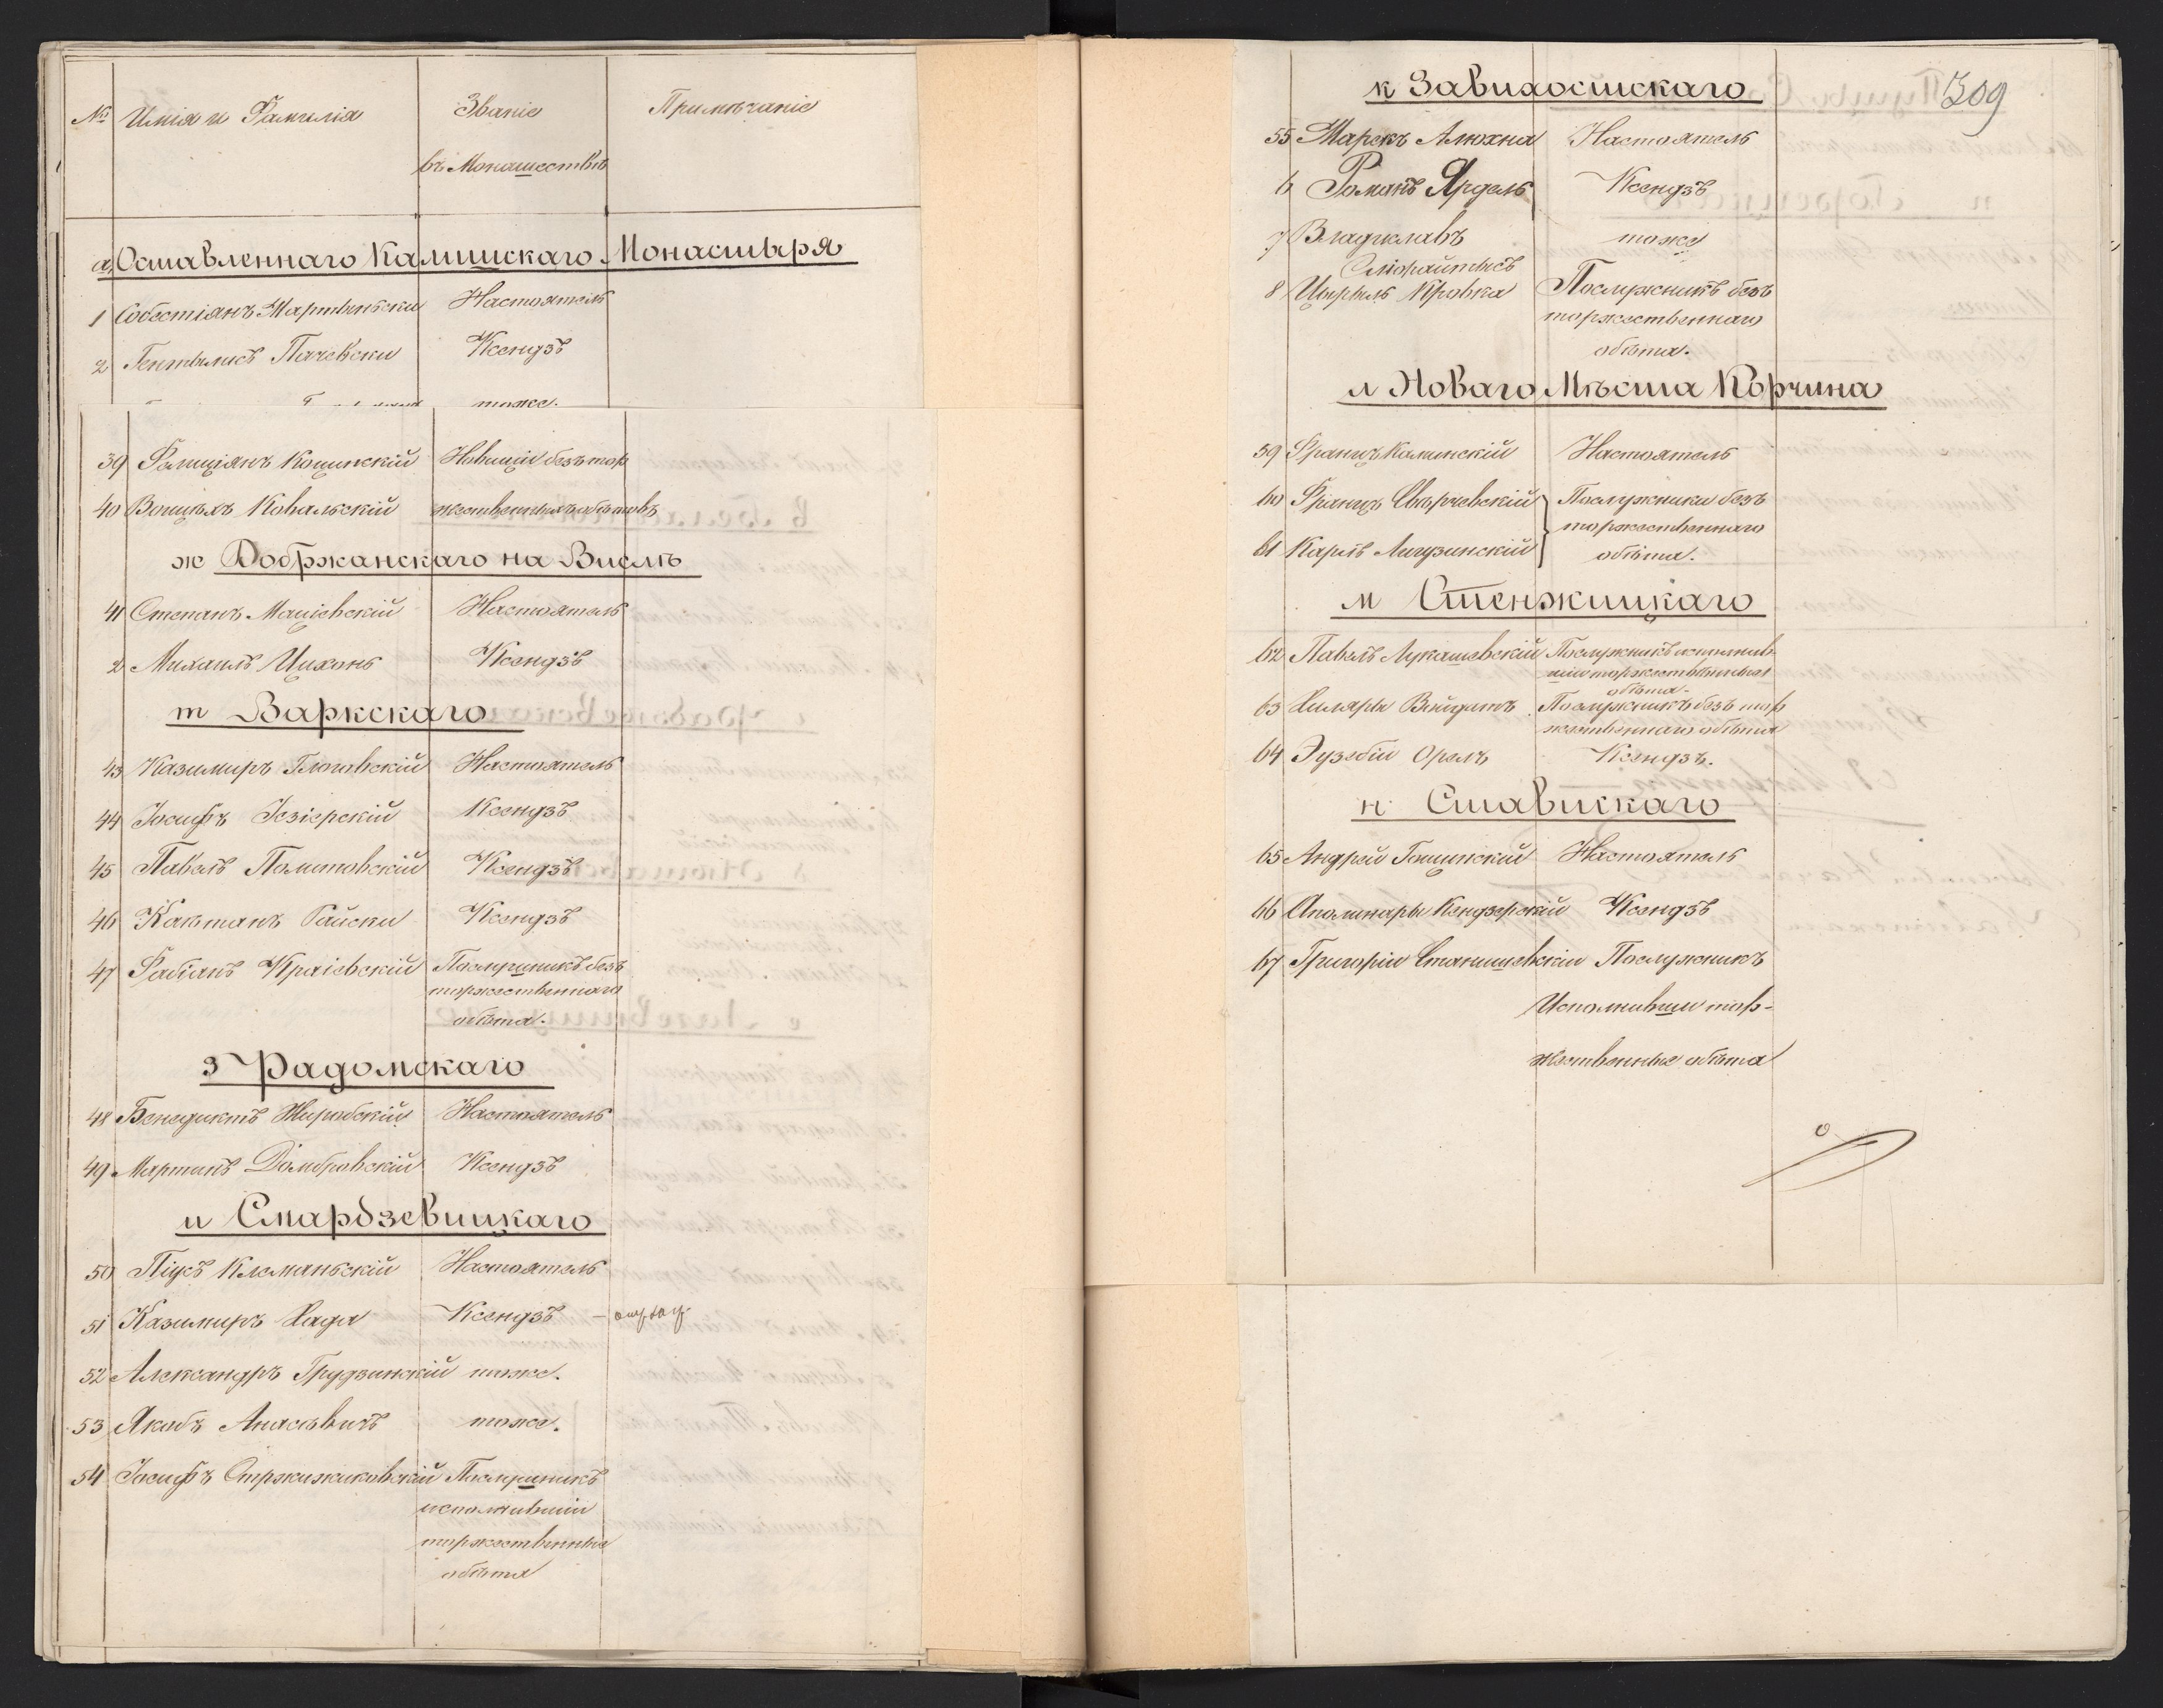 № Имія и Фамилія Званіе Примѣчаніе
въ Монашествѣ
а Оставленнаго Калишскаго Монастыря
1 Собестіянъ Мартвиньски Настоятель
2 Гентылисъ Пачевски Ксендзъ
тоже.
39 Фелиціянъ Коцинскій Новиціи безъ тор
40 Воицѣхъ Ковальскій жественныхъ обѣтовъ
ж Добржанскаго на Вислѣ
41 Степанъ Маціевскій Настоятель
2 Михаилъ Цихонь Ксендзъ
т Варкскаго
43 Казимиръ Глоговскій Настоятель
44 Іосифъ Іезіерскій Ксендзъ
45 Павелъ Политовскій Ксендзъ
46 Каетанъ Райски Ксендзъ
47 Фабіанъ Краіевскій Послушникъ безъ
торжественнаго
обѣта.
з Радомскаго
48 Бенедиктъ Жирибскій Настоятель
49 Мартинъ Домбровскій Ксендзъ
и Смардзевицкаго
50 Піусъ Клеманьскій Настоятель
51 Казимиръ Хада Ксендзъ
52 Александръ Грудзинскій тоже.
53 Якобъ Анасевичъ тоже.
54 Іосифъ Стржижиковскій Послушникъ
исполнившіи
торжественные
обѣта
к Завихостскаго 309
55 Марекъ Алюхна Настоятель
6 Романъ Ярдель Ксендзъ
7 Владиславъ тоже
8 Цырыль Кровка Послужникъ безъ
торжественнаго
обѣта.
л Новаго Мѣста Корчина
59 Францъ Калинскій Настоятель
60 Францъ Свѣрчевскій Послужники безъ
торжественнаго
61 Карлъ Лигузинскій обѣта.
м Стенжицкаго
62 Павелъ Лукашевскій Послужникъ исполнив-
шіи торжественныя
обѣта.
63 Хиляры Вейдатъ Послужникъ безъ тор
жественнаго обѣта
64 Эузебіи Орелъ Ксендзъ.
н Ставискаго
65 Андрей Гощинскій Настоятель
66 Аполинары Кендзерскій Ксендзъ
67 Григоріи Станишевскіи Послужникъ
Исполнивши тор-
жественные обѣта